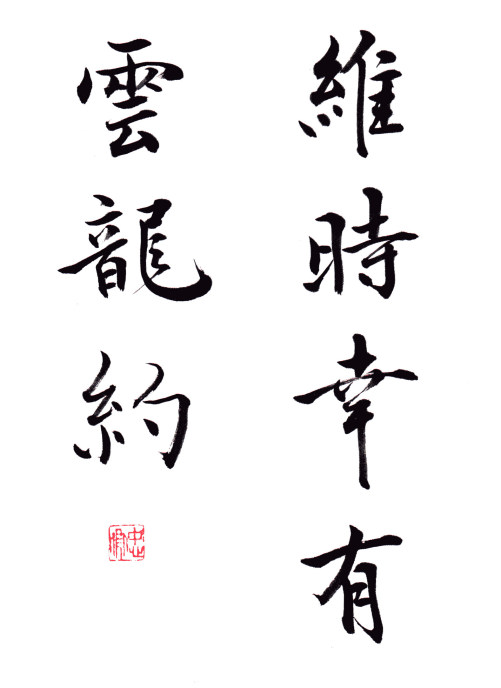 維時幸有
雲龍約